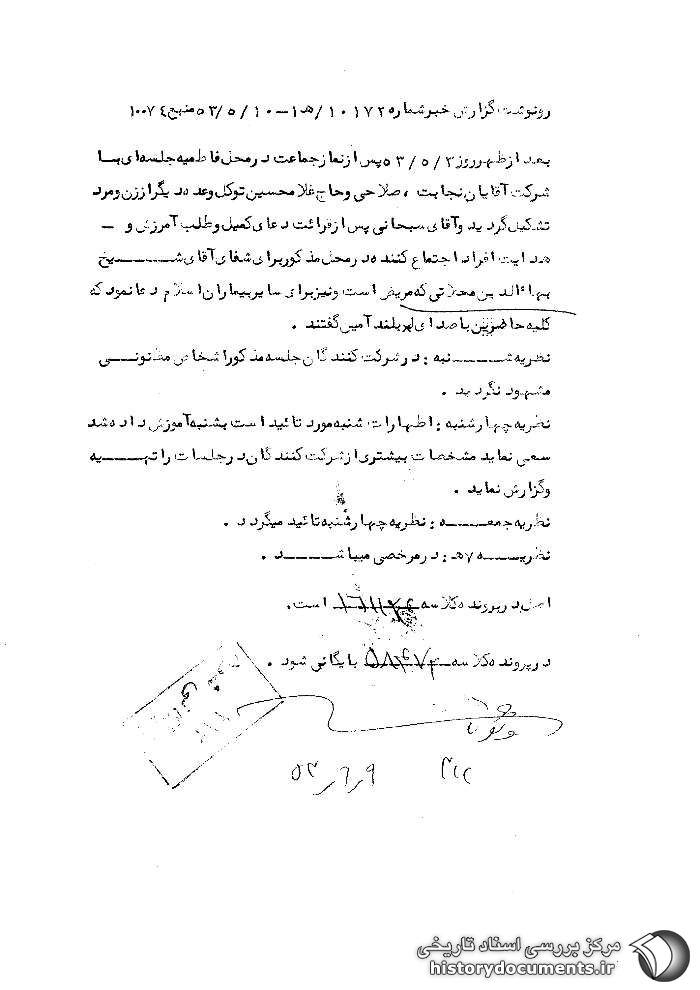 رونوشت گزارش خبر شماره ۱۰۱۷۲/ ۱ه‍ - ۱۰/۵/۵۳ منبع ۱۰۰۷۴
بعد از ظهر روز ۵۳/۵/۲ پس از نماز جماعت در محل فاطمیه جلسه‌ای با
شرکت آقایان نجابت ، صلاحی و حاج غلامحسین توکل و عده دیگر از زن و مرد
تشکیل گردید و آقای سبحانی پس از قرائت دعای کمیل و طلب آمرزش و –
هدایت افراد اجتماع کننده در محل مذکور برای شفای آقای شـــــیخ
بهاءالدین محلاتی که مریض است و نیز برای سایر بیماران اسلام دعا نمود که
کلیه حاضرین با صدای بلند آمین گفتند .
نظریه شـــــنبه : در شرکت کنندگان جلسه مذکور اشخاص مظنونـــی
مشهود نگردید .
نظریه چهارشنبه : اظهارات شنبه مورد تائید است بشنبه آموزش داده شد
سعی نماید مشخصات بیشتری از شرکت کنندگان در جلسات را تهـــیه
و گزارش نماید .
نظریه جمعـــــه : نظریه چهارشنبه تائید میگردد .
نظریـــــه ۷ه‍ : در مرخصی میباشـــــد .
اصل در پرونده کلاسه است .
در پرونده کلاسه بایگانی شود .
۵۳/۶/۹
مرکز بررسی اسناد تاریخی
historydocuments.ir